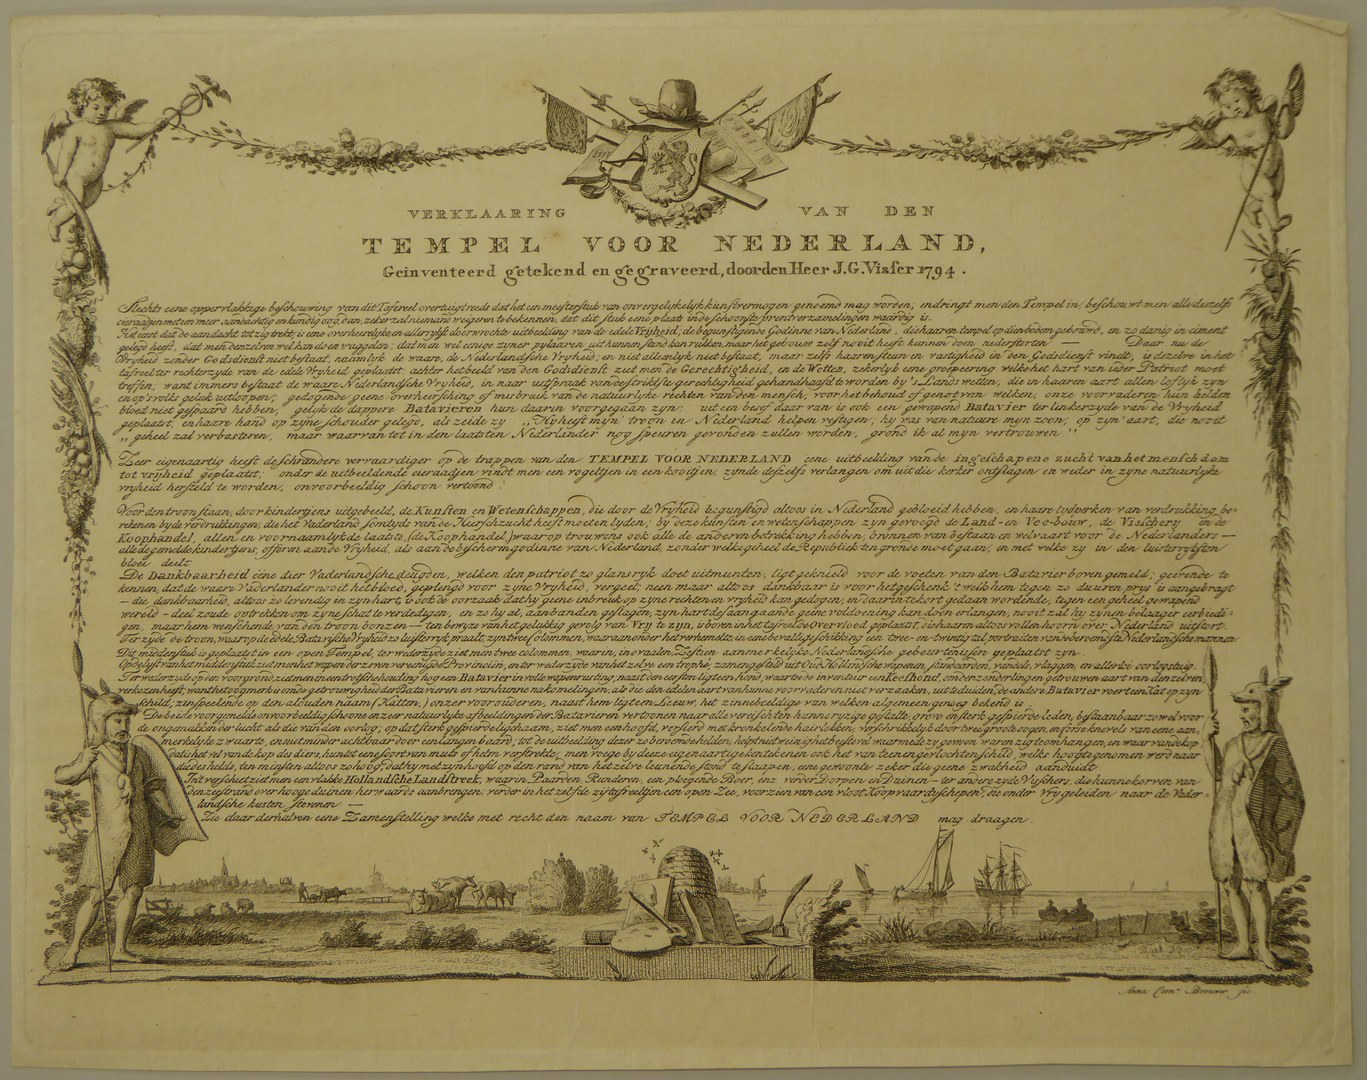 VERKLAARING VAN DEN
TEMPEL VOOR NEDERLAND,
Geinventeerd getekend en gegraveerd, door den Heer J.G. Visser 1794.
Slechts eene oppervlakkige beschouwing van dit Tafereel overtuigt reeds dat het een meesterstuk van onvergelijkelijk kunstvermogen genoemd mag worden; en dringt men den Tempel in, beschouwt men alle deszelfs
cieraagen met een meer aandachtig en kundig oog, dan, zeker zal niemand weigeren te bekennen, dat dit stuk eene plaat in de schoonste prentverzamelingen waardig is.
Het eerst dat de aandacht tot zig trekt, is eene overheerlijke en allersyfst doorwrochte uitbeelding van de edele Vrijheid, de begunstigende Godinne van Nederland, die haaren tempel op dien bodem gebouwd, en zo danig in ciment
gelegd heeft, dat men denzelven wel kan doen waggelen; dat men wel eenige zyner pylaaren uit hunnen stand kan rukken, maar het gebouw zelf nooit heeft kunnen doen nederstorten — Daar nu de
Vryheid zonder Godsdienst niet bestaat, naamlyk de waare, de Nederlandsche Vryheid; en niet alleenlyk niet bestaat, maar zelfs haaren steun en vastigheid in den Godsdienst vindt, is dezelve in het
tafreel ter rechterzyde van de edele Vryheid geplaatst. achter het beeld van den Godsdienst ziet men de Gerechtigheid, en de Wetten, zekerlyk eene groepeering welke het hart van ieder Patriot moet
treffen; want immers bestaat de waare Nederlandsche Vryheid, in naar uitspraak van de striktste gerechtigheid gehandhaafd te worden by 's Lands wetten, die in haaren aart allen loflyk zyn
en op 's volks geluk uitloopen; gedogende geene overheersching of misbruik van de natuurlyke rechten van den mensch, voor het behoud of genot van welken, onze voorvaderen hun helden
bloed niet gespaard hebben, gelyk de dappere Batavieren hun daarin voorgegaan zyn: uit een besef daar van is ook een gewapend Batavier ter linkerzyde van de Vryheid
geplaatst, en haare hand op zyne schouder gelegd, als zeide zy „Hy heeft myn troon in Nederland helpen vestigen, hy was van natuure myn zoon, op zyn' aart, die nooit
„geheel zal verbasteren, maar waar van tot in den laatsten Nederlander nog speuren gevonden zullen worden, grond ik al myn vertrouwen”
Zeer eigenaartig heeft de schrandere vervaardiger op de trappen van den TEMPEL VOOR NEDERLAND eene uitbeelding van de ingeschapene zucht van het menschdom
tot vryheid geplaatst, onder de uitbeeldende cieraadjen vindt men een vogeltjen in een kooitjen, zynde deszelfs verlangen om uit die kerker ontslagen en weder in zyne natuurlyke
vryheid hersteld te worden, onvoorbeeldig schoon vertoond:
Voor den troon staan, door kindertjens uitgebeeld, de Kunsten en Wetenschappen, die door de Vryheid begunstigd altoos in Nederland gebloeid hebben, en haare tydperken van verdrukking be-
rekenen by de verdrukkingen, die het Vaderland somtyds van de Heerschzucht heeft moeten lyden; by deze kunsten en wetenschappen zyn gevoegd de Land- en Vee-bouw, de Visschery en de
Koophandel, allen en voornaamlyk de laatste, (de Koophandel) waar op trouwens ook alle de anderen betrekking hebben, bronnen van bestaan en welvaart voor de Nederlanders —
alle de gemelde kindertjens, offeren aan de Vryheid, als aan de bescherm godinne van Nederland, zonder welke geheel de Republiek ten gronde moet gaan, en met welke zy in den luisterrykſten
bloei deelt
De Dankbaarheid eene dier Vaderlandsche deugden, welken den patriot zo glansryk doet uitmunten, ligt geknield voor de voeten van den Batavier boven gemeld; geevende te
kennen, dat de waare Vaderlander nooit het bloed, geplengd voor zyne Vryheid, vergeet; neen maar altoos dankbaar is voor het geschenk 't welk hem tegen zo duuren prys is aangebragt
— die dankbaarheid, altoos zo levendig in zyn hart, is ook de oorzaak dat hy geene inbreuk op zyne rechten en vryheid kan gedogen; en daar in te kort gedaan wordende, tegen een geheel gewapend
wereld-deel zoude optrekken om zyne schat te verdedigen
gen, maar hem wenschende, van den troon bonzen — ten bewyze van het gelukkig gevolg van Vry te zyn, is boven in het tafreel de Overvloed geplaatst, die haaren altoos vollen hoorn over Nederland uitstort.
Ter zyde de troon, waar op de edele Bataafsche Vryheid zo luisterryk praalt, zyn twee Colommen, waar aan onder het verhemelte, in eene bevallige schikking een twee-en-twintigtal portraiten van de beroemdste Nederlandsche mannen
Dit middenstuk is geplaatst in een open Tempel, ter wederzyde ziet men twee colommen, waarin, in ovaalen, Zestien aanmerkelyke Nederlandsche gebeurtenissen geplaatst zyn.
Op de lyst van het middenstuk ziet men het wapen der zeven vereenigde Provinciën, en ter wederzyde van het zelve een trophé, zamengesteld uit Oud Hollandsche wapenen, standaarden, vaandels, vlaggen, en allerlei oorlogstuig.
Ter wederzyde op den voorgrond, ziet men in eene trotsche houding nog een Batavier in volle wapenrusting; naast den eersten ligt een hond, waar by de inventeur een Keeshond, om den zonderlingen getrouwen aart van denzelven
verkozen heeft, want het oogmerk is om de getrouwigheid der Batavieren en van hunne nakomelingen, als die den edelen aart van hunne voorvaderen niet verzaaken, uit te duiden; de andere Batavier voert een Kat op zyn
schild, zinspeelende op den alouden naam (Katten,) onzer voorouderen, naast hem ligt een Leeuw, het zinnebeeldige van welken algemeen genoeg bekend is.
De beide voorgemelde onvoorbeeldig schoone en zeer natuurlyke afbeeldingen der Batavieren vertoonen naar alle vereischten hunne ryzige gestalte, grove en sterk gespierde leden, bestaanbaar zo wel voor
de ongemakken der lucht als die van den oorlog, op dit sterk gespierde lighaam, ziet men een hoofd, versierd met kronkelende hairlokken; verschrikkelyk door twee groote oogen, en forse knevels van eene aan-
merkelyke zwarte, en niet minder achtbaar door een langen baard,
In 't verschiet ziet men een vlakke Hollandsche Landstreek, waar in, Paarden, Runderen, een ploegende Boer, enz. verder Dorpen en Duinen — ter andere zyde Visschers, die hunne korven van
den zeestrand over hooge duinen herwaards aanbrengen; verder in het zelfde zytafreeltjen een open Zee, voorzien van een vloot Koopvaardyschepen, die onder Vrygeleiden naar de Vader-
landsche kusten stevenen —
Zie daar derhalven eene Zamenstelling welke met recht den naam van TEMPEL VOOR NEDERLAND mag draagen.
Anna Corn.ᵃ Brouwer fec.